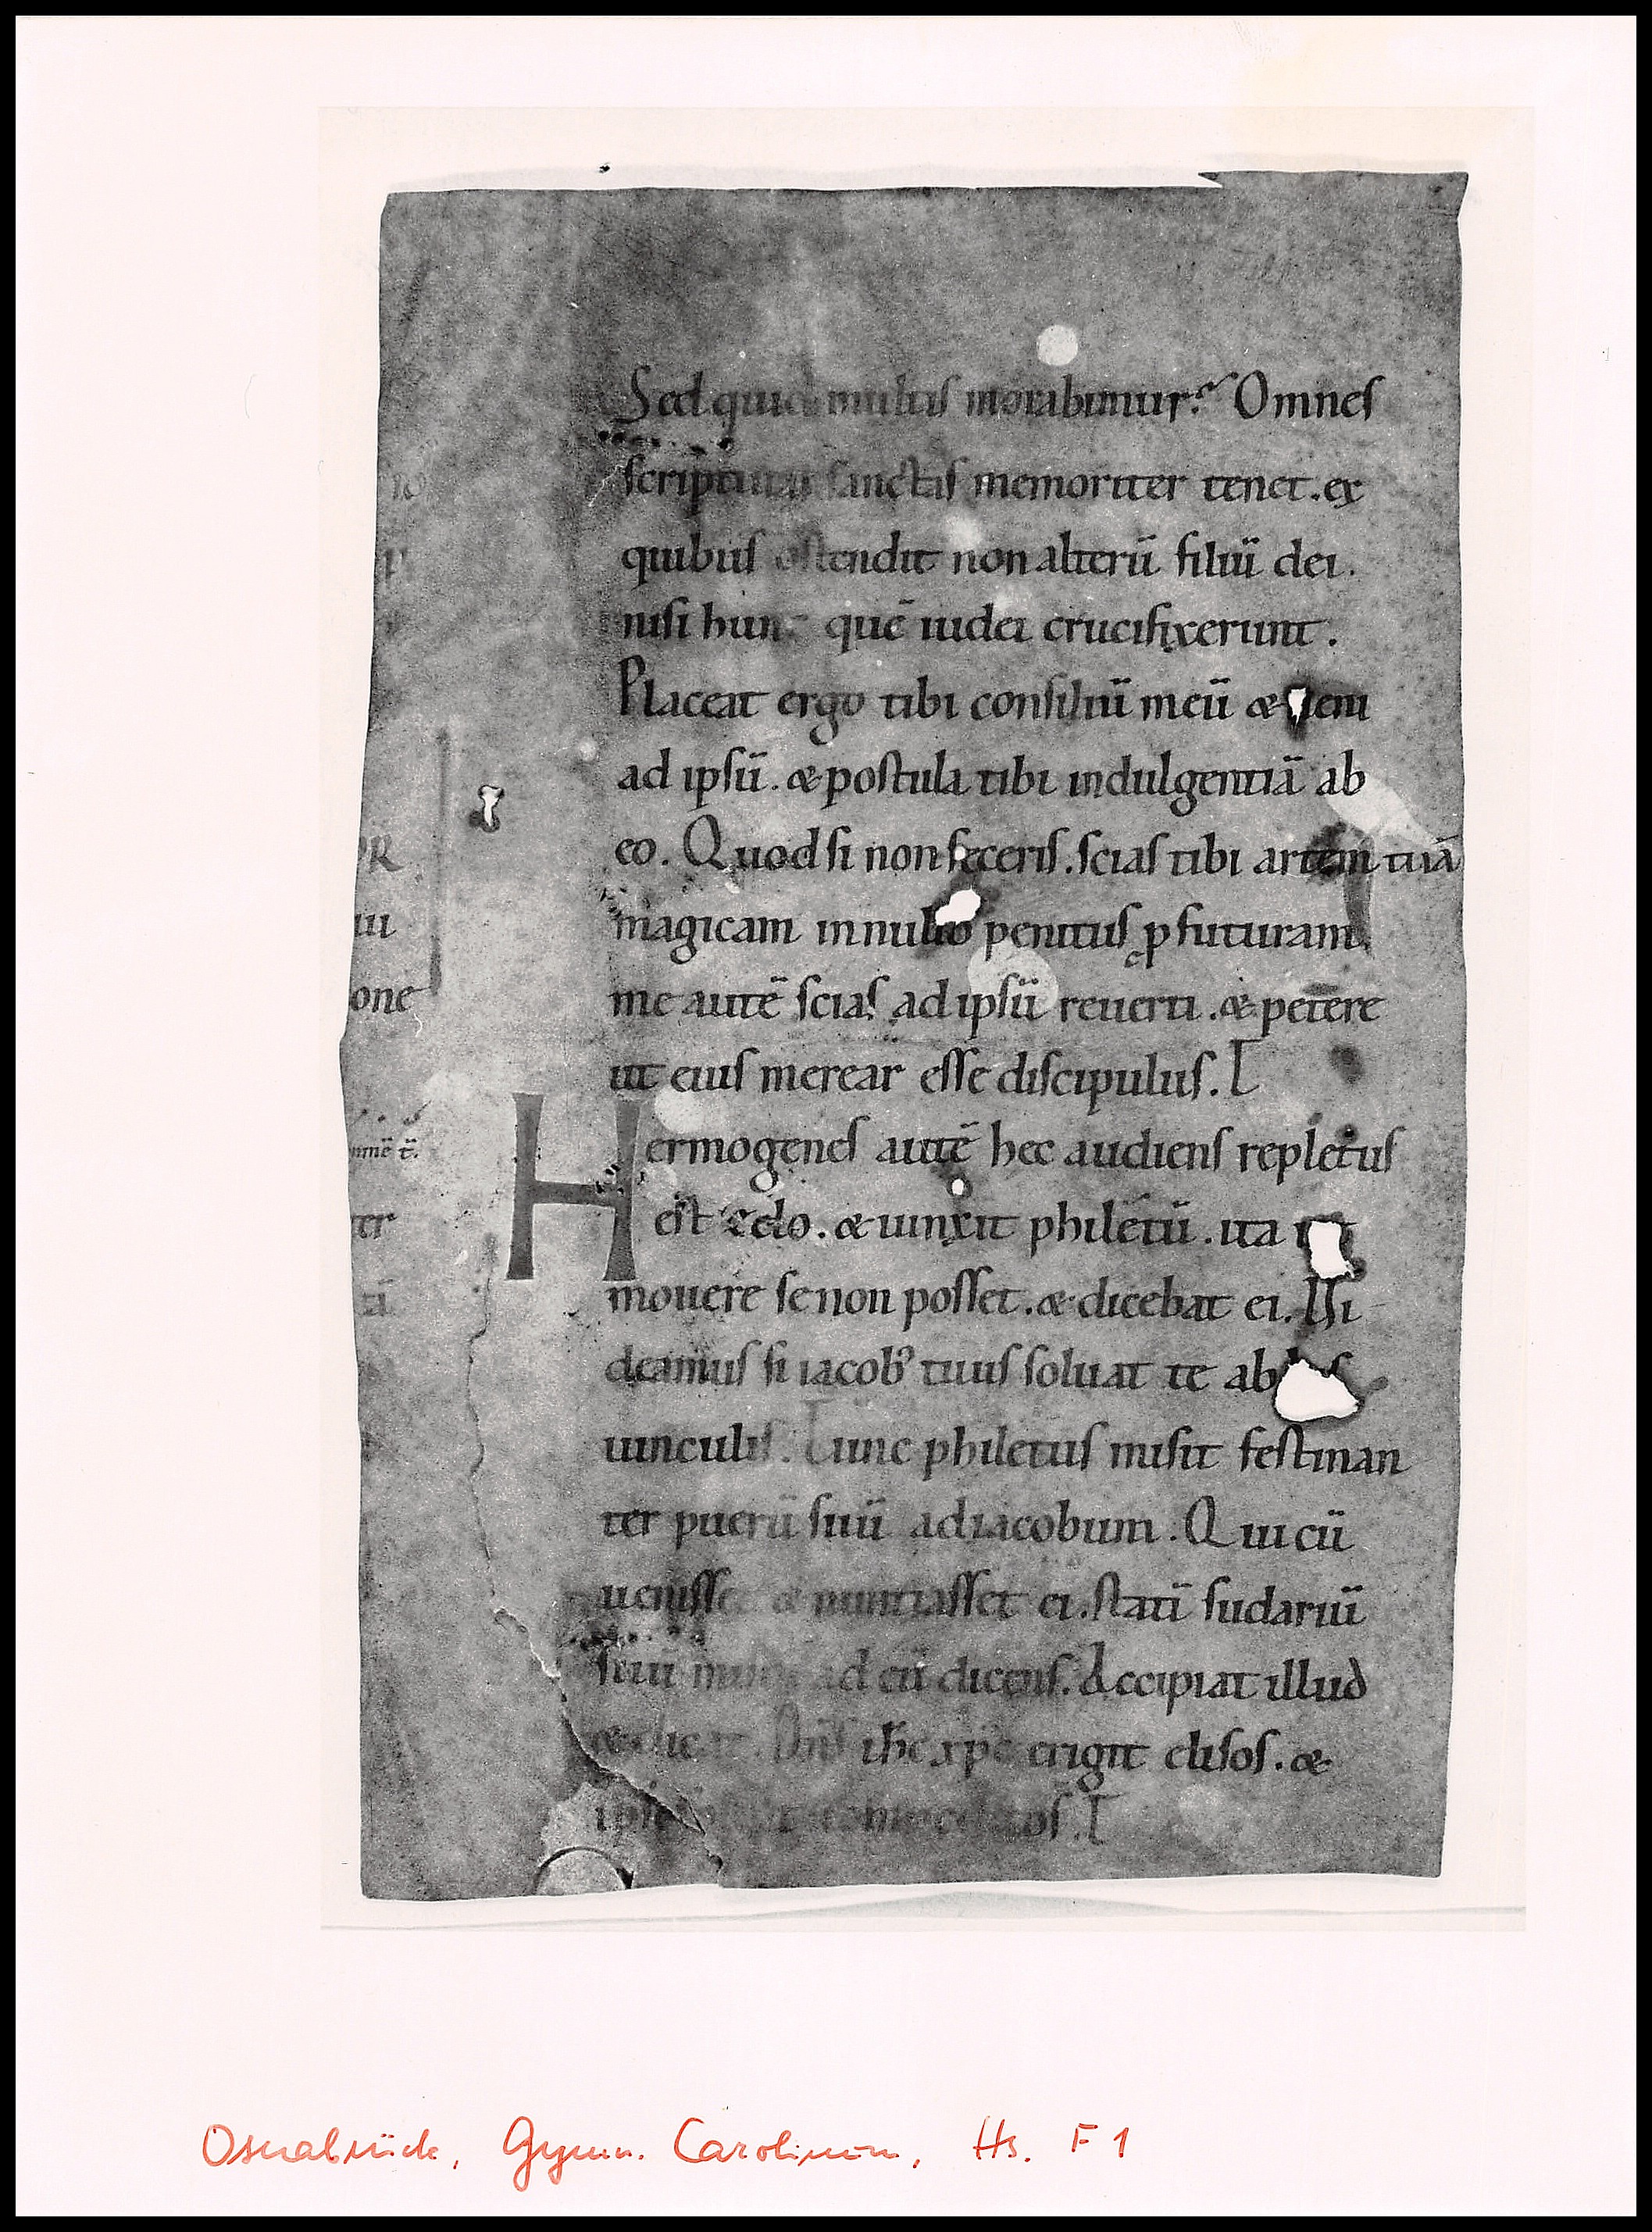 Sed quid multis morabimur? Omnes
scripturas sanctas memoriter tenet. ex
quibus ostendit non alterū filiū dei.
nisi hunc quē iudei crucifixerunt.
Placeat ergo tibi consiliū meū & ueni
ad ipsū. & postula tibi indulgentiā ab
eo. Quod si non feceris. scias tibi artem tuā
magicam in nullo penitus ꝓfuturam,
me autē scias ad ipsū reuerti. & petere
ut eius merear esse discipulus.
Hermogenes autē hec audiens repletus
est zelo. & uinxit philetū. ita ut
mouere se non posset. & dicebat ei. Vi
deamus si iacobꝰ tuus soluat te ab his
uinculis. Tunc philetus misit festinan
ter puerū suū ad iacobum. Qui cū
uenisset & nuntiasset ei. statī sudariū
suū misit ad eū dicens. Accipiat illud
& dicat. Dn̄s ihc xp̄c erigit elisos. &
ipse
one